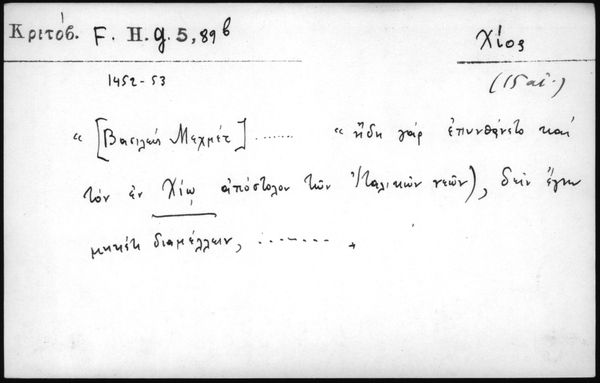 Κριτόβ. F. H. g. 5, 89 b
Χίος
1452-53
(15 αἰ.)
“ [Βασιλεὺς Μεχμέτ] ....... “ ἤδη γάρ ἐπυνθάνετο καί
τόν ἐν Χίῳ ἀπόστολον τῶν Ἰταλικῶν νεῶν), δεῖν ἔγνω
μηκέτι διαμέλλειν, ..........